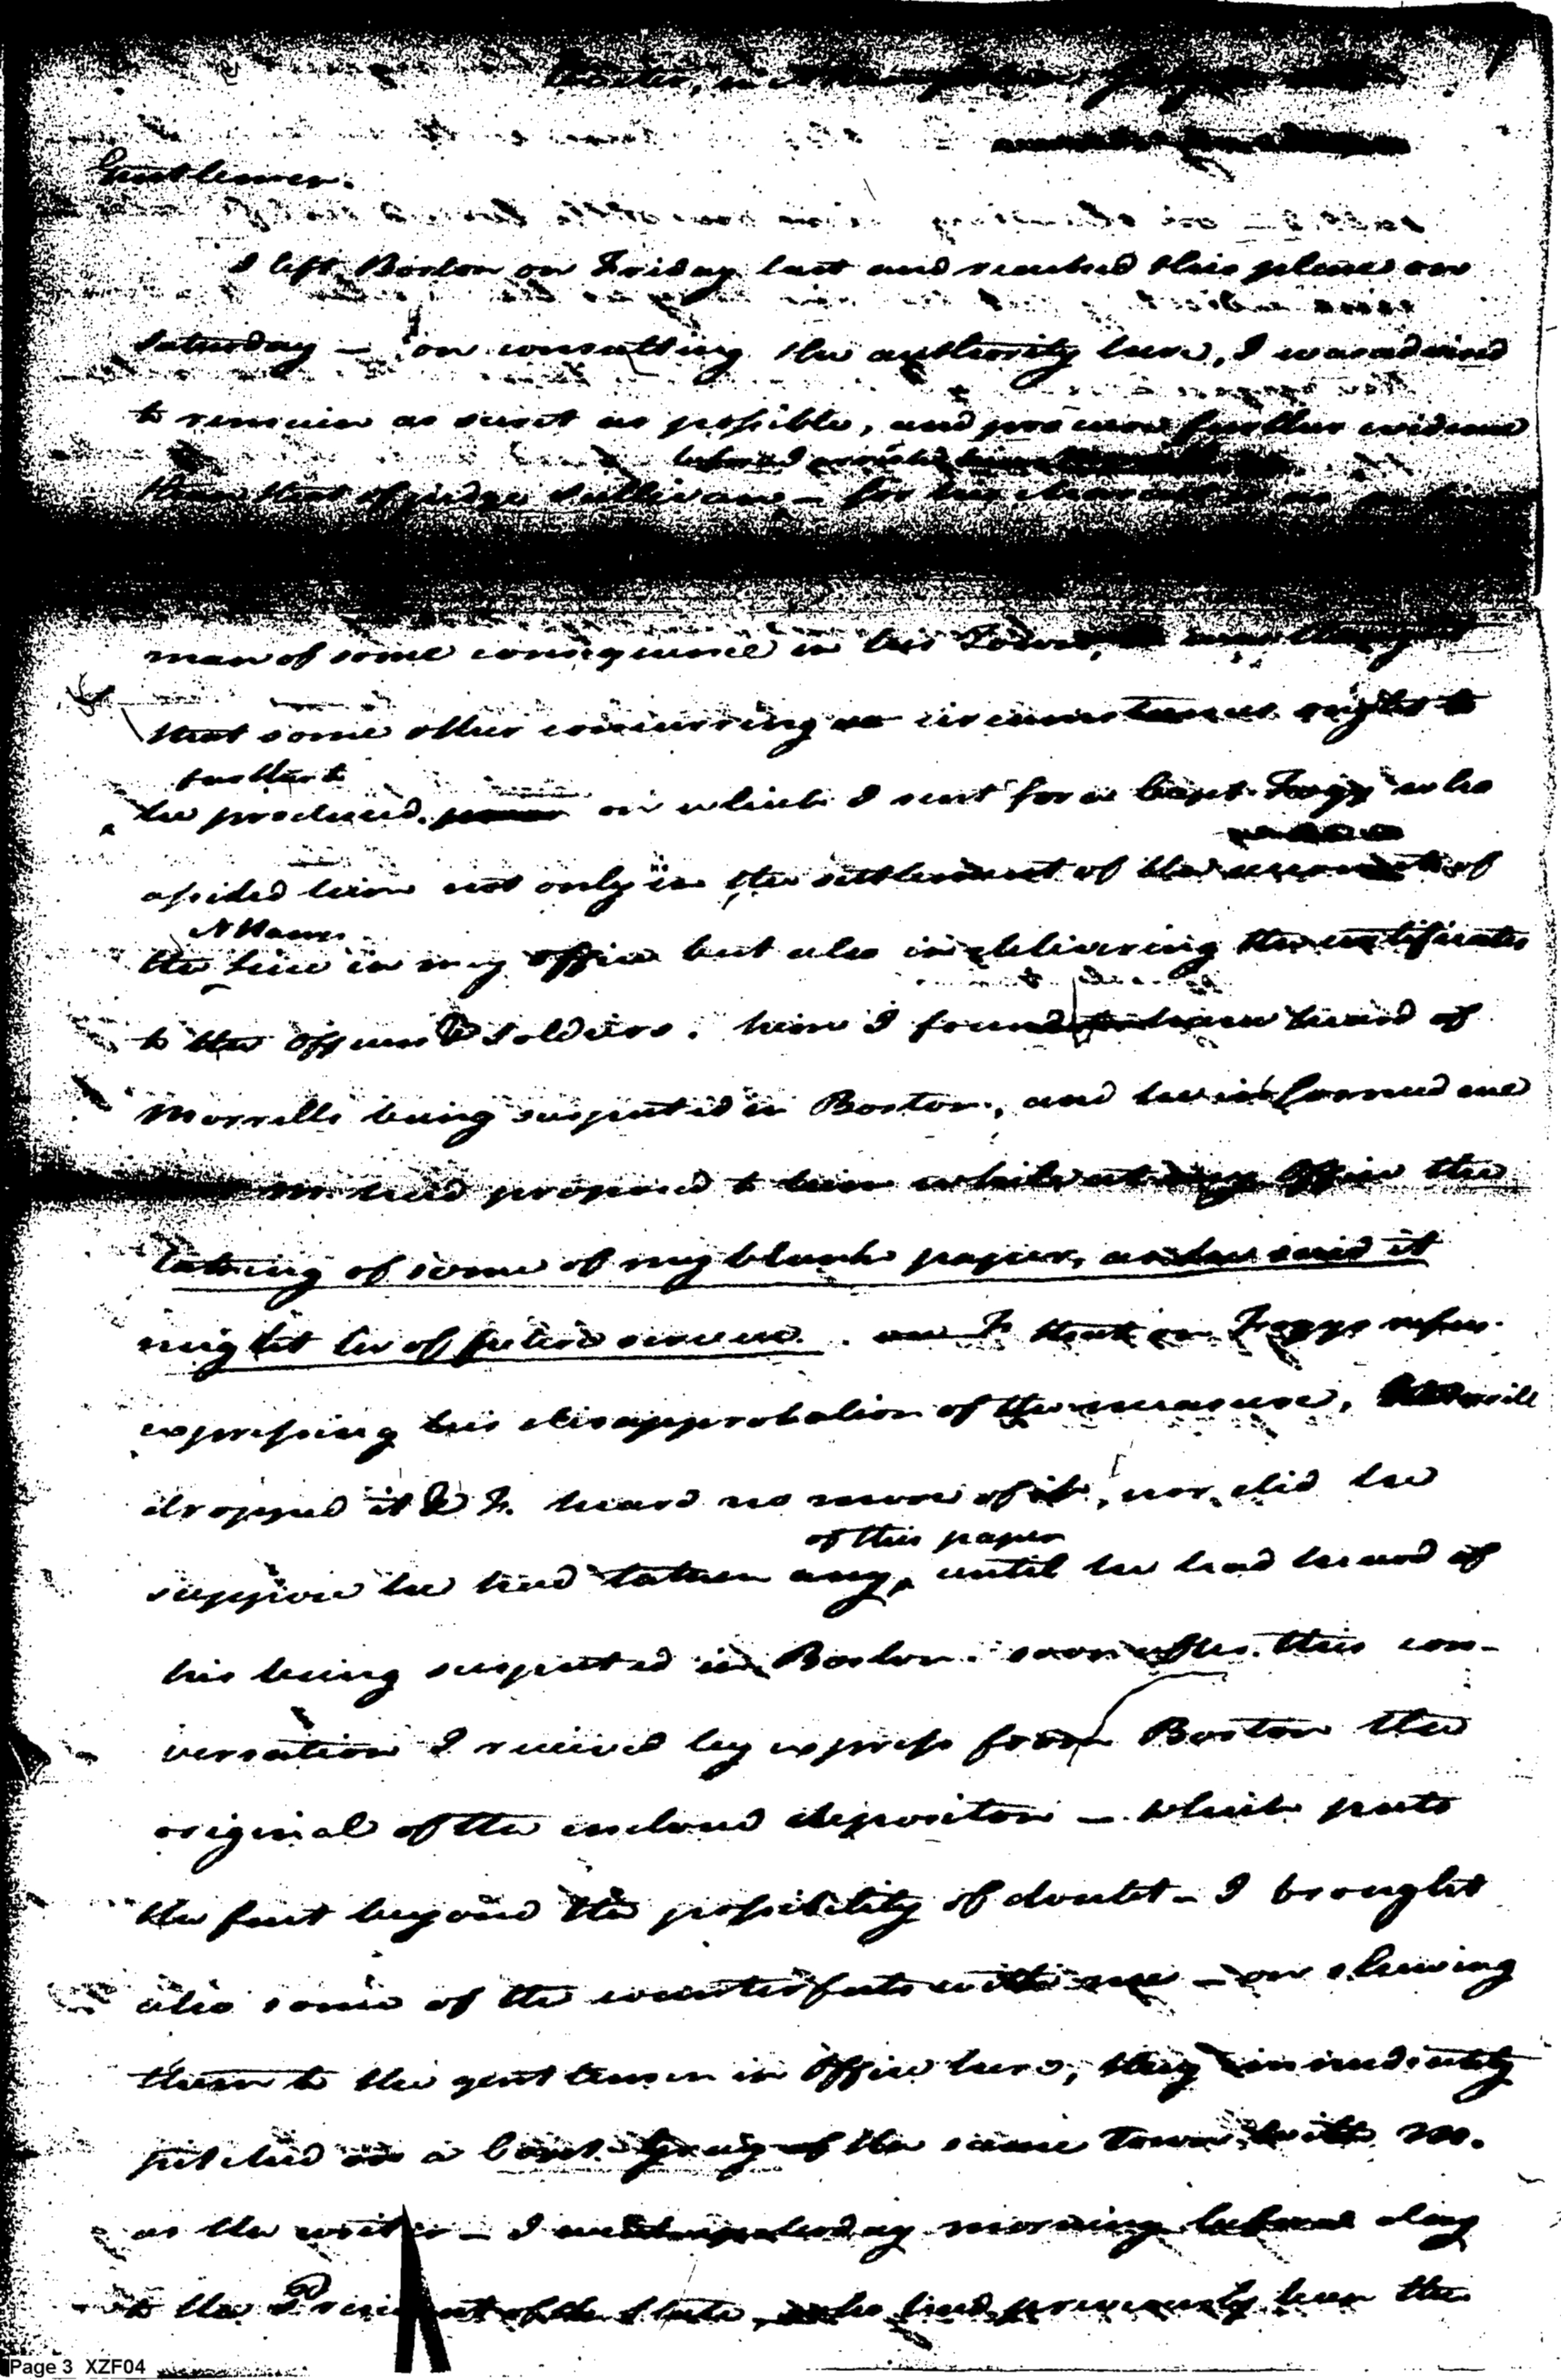 Exeter, in New
Gentlemen.
I left Boston on Friday last and reached this place on
Saturday — on consulting the authority here, I was advised
to remain as secret as possible, and procure further evidence
before I arrested him
than that of judge Sullivan — for his character as a
man of some consequence in his Town, it was thought
that some other concurring circumstances ought to
further to
be produced. on which I sent for a Capt. Fogg who
assisted him not only in the settlement of the accounts of
N Hamr.
the line in my office but also in delivering the certificates
to the officers & soldiers. him I found to have heard of
Morrells being suspected in Boston, and he informed me
M. had proposed to him while at my office the
taking of some of my blank paper, as he said it
might be of future service. that on Foggs
expressing his disapprobation of the measure, Morrill
dropped it & F. heard no more of it, nor did he
of this paper
suppose he had taken any, until he had heard of
his being suspected in Boston. soon after this con-
versation I received by express from Boston the
original of the enclosed depositon — which puts
the fact beyond the possibility of doubt — I brought
also some of the counterfeits with me — on shewing
them to the gentlemen in office here, they immediately
pitched on a Capt. Gray of the same Town with M.
as the writer — I went yesterday morning before day
to the President of the State, who had previously been the
Page 3 XZF04